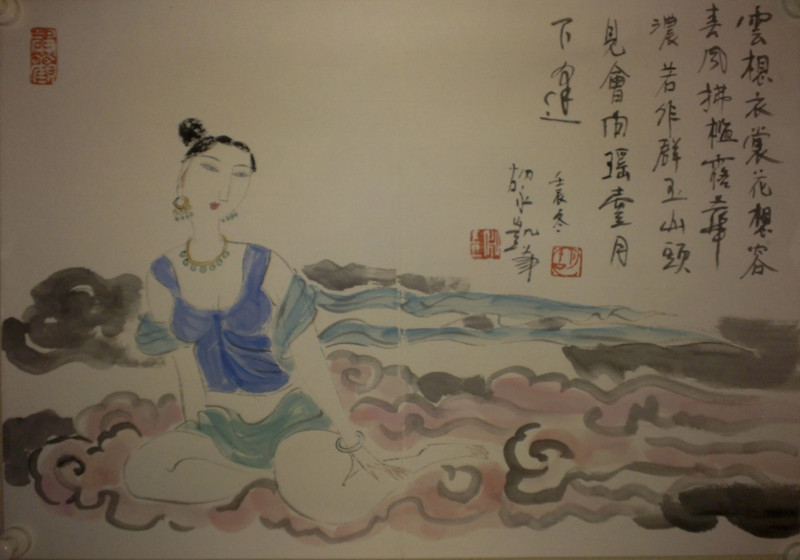 雲想衣裳花想容
春風拂檻露華
濃若非群玉山頭
見會向瑶臺月
下逢
壬辰冬
胡永凱